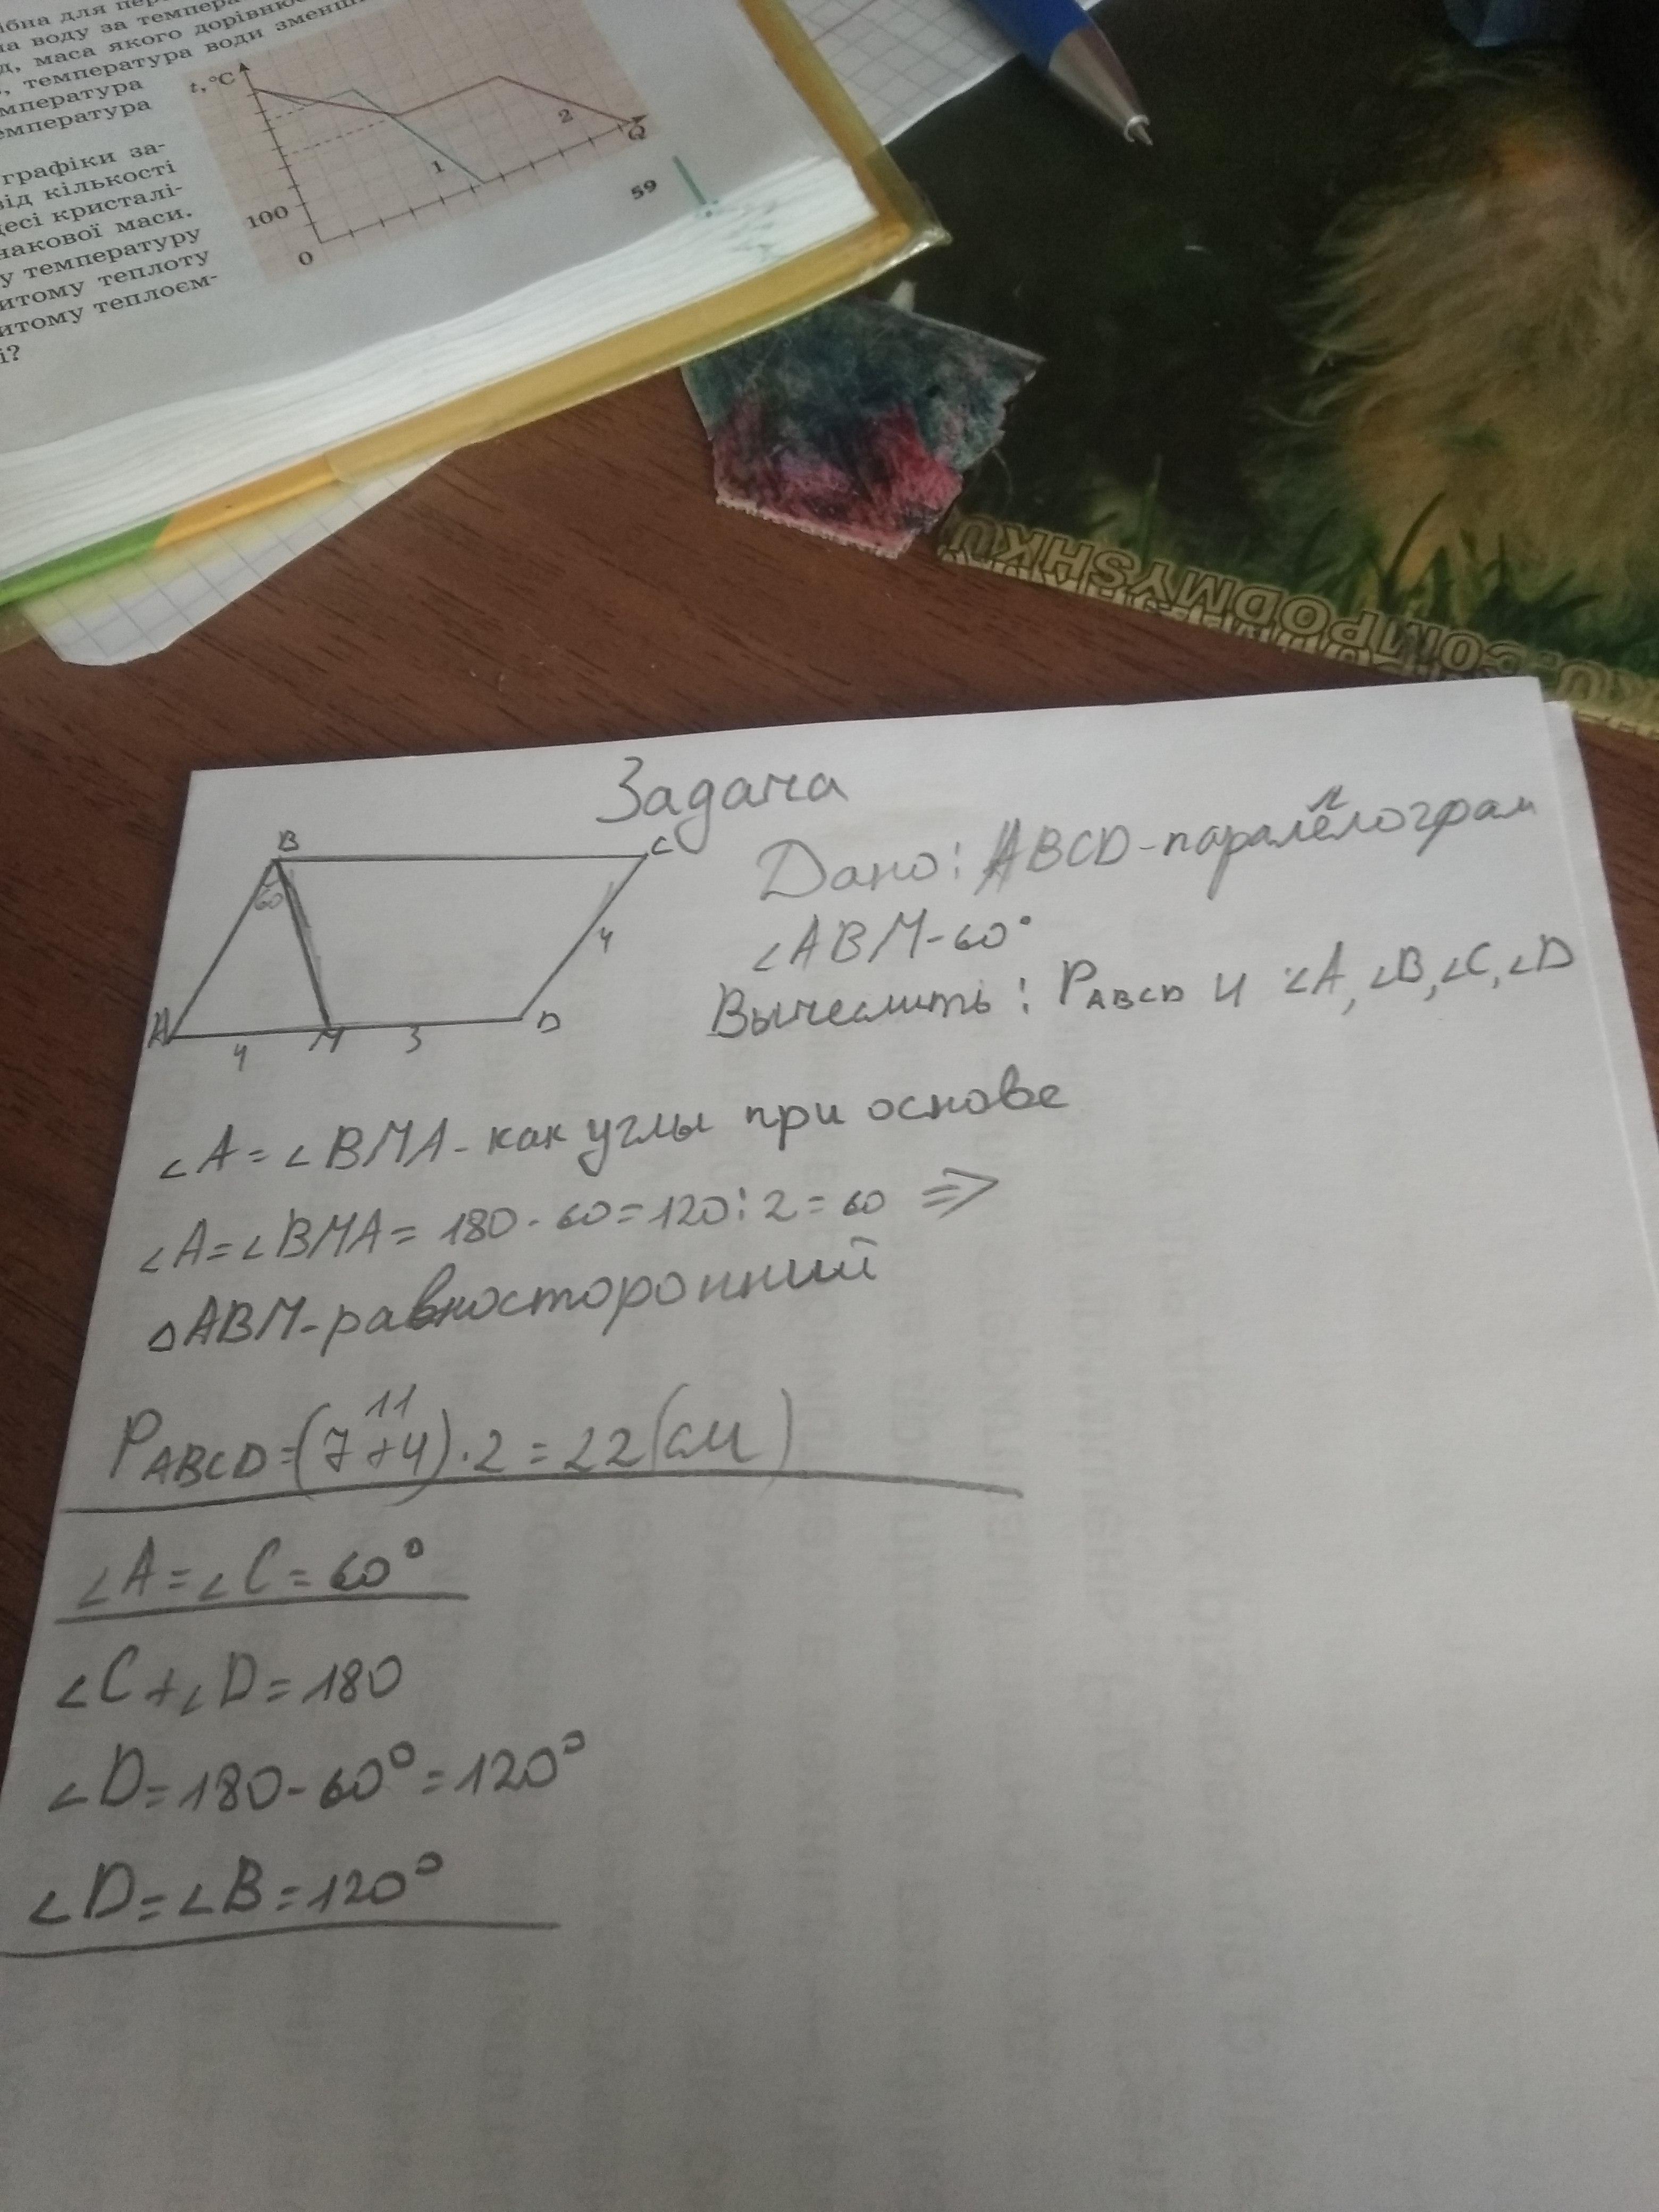 на воду за темпера
маса якого дорівнює
температура води зменш
температура
графіки за-
від кількості
кристалі-
накової маси.
у температуру
питому теплоту
питому теплоєм-
і?
t, °C
100
0
1
2
Q
59
PODMYSHKU
Задача
B
C
60
4
A
4
M
3
D
Дано: ABCD-паралелограм
л
∠ABM-60°
Вычеслить: PABCD и ∠A, ∠B, ∠C, ∠D
∠A=∠BMA-как углы при основе
∠A=∠BMA= 180-60=120:2=60 ⇒
△ABM-равносторонний
11
PABCD=(7+4)·2=22(см)
∠A=∠C=60°
∠C+∠D=180
∠D=180-60°=120°
∠D=∠B=120°